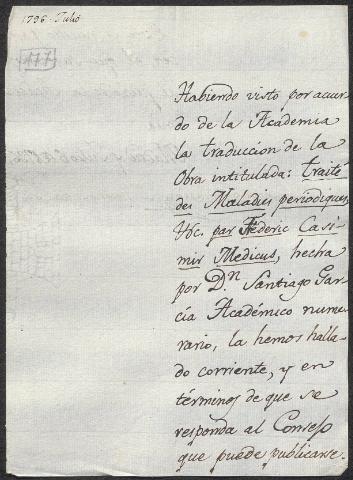 1796. Julio
117
Habiendo visto por acuer-
do de la Academia
la traduccion de la
Obra intitulada: traité
des Maladies periodiques,
&c. par Féderic Casi-
mir Medicus, hecha
por D.n Santiago Gar-
cia Académico nume-
rario, la hemos halla-
do corriente, y en
términos de que se
responda al Consejo
que puede publicarse.